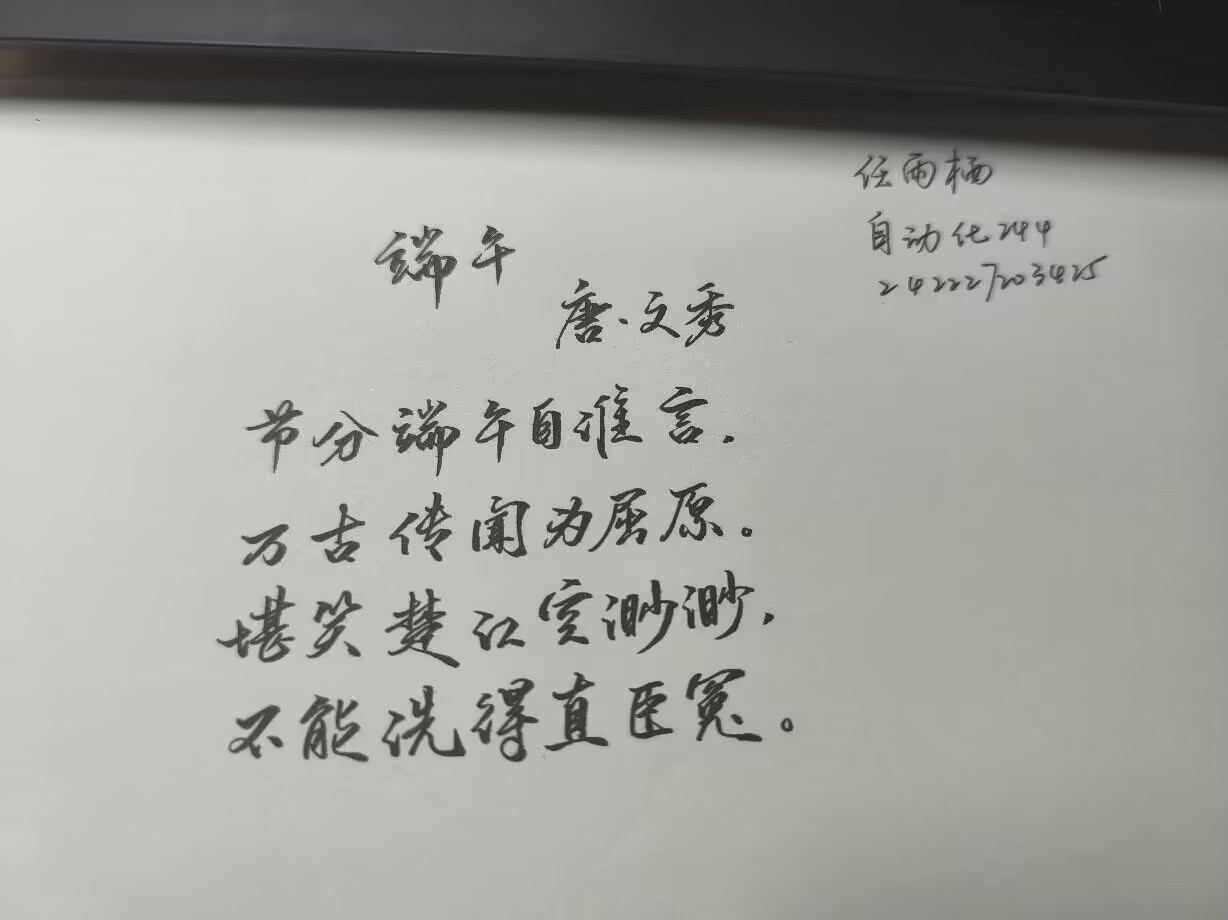 任雨栖
自动化244
242227203425
端午
唐·文秀
节分端午自谁言,
万古传闻为屈原。
堪笑楚江空渺渺,
不能洗得直臣冤。